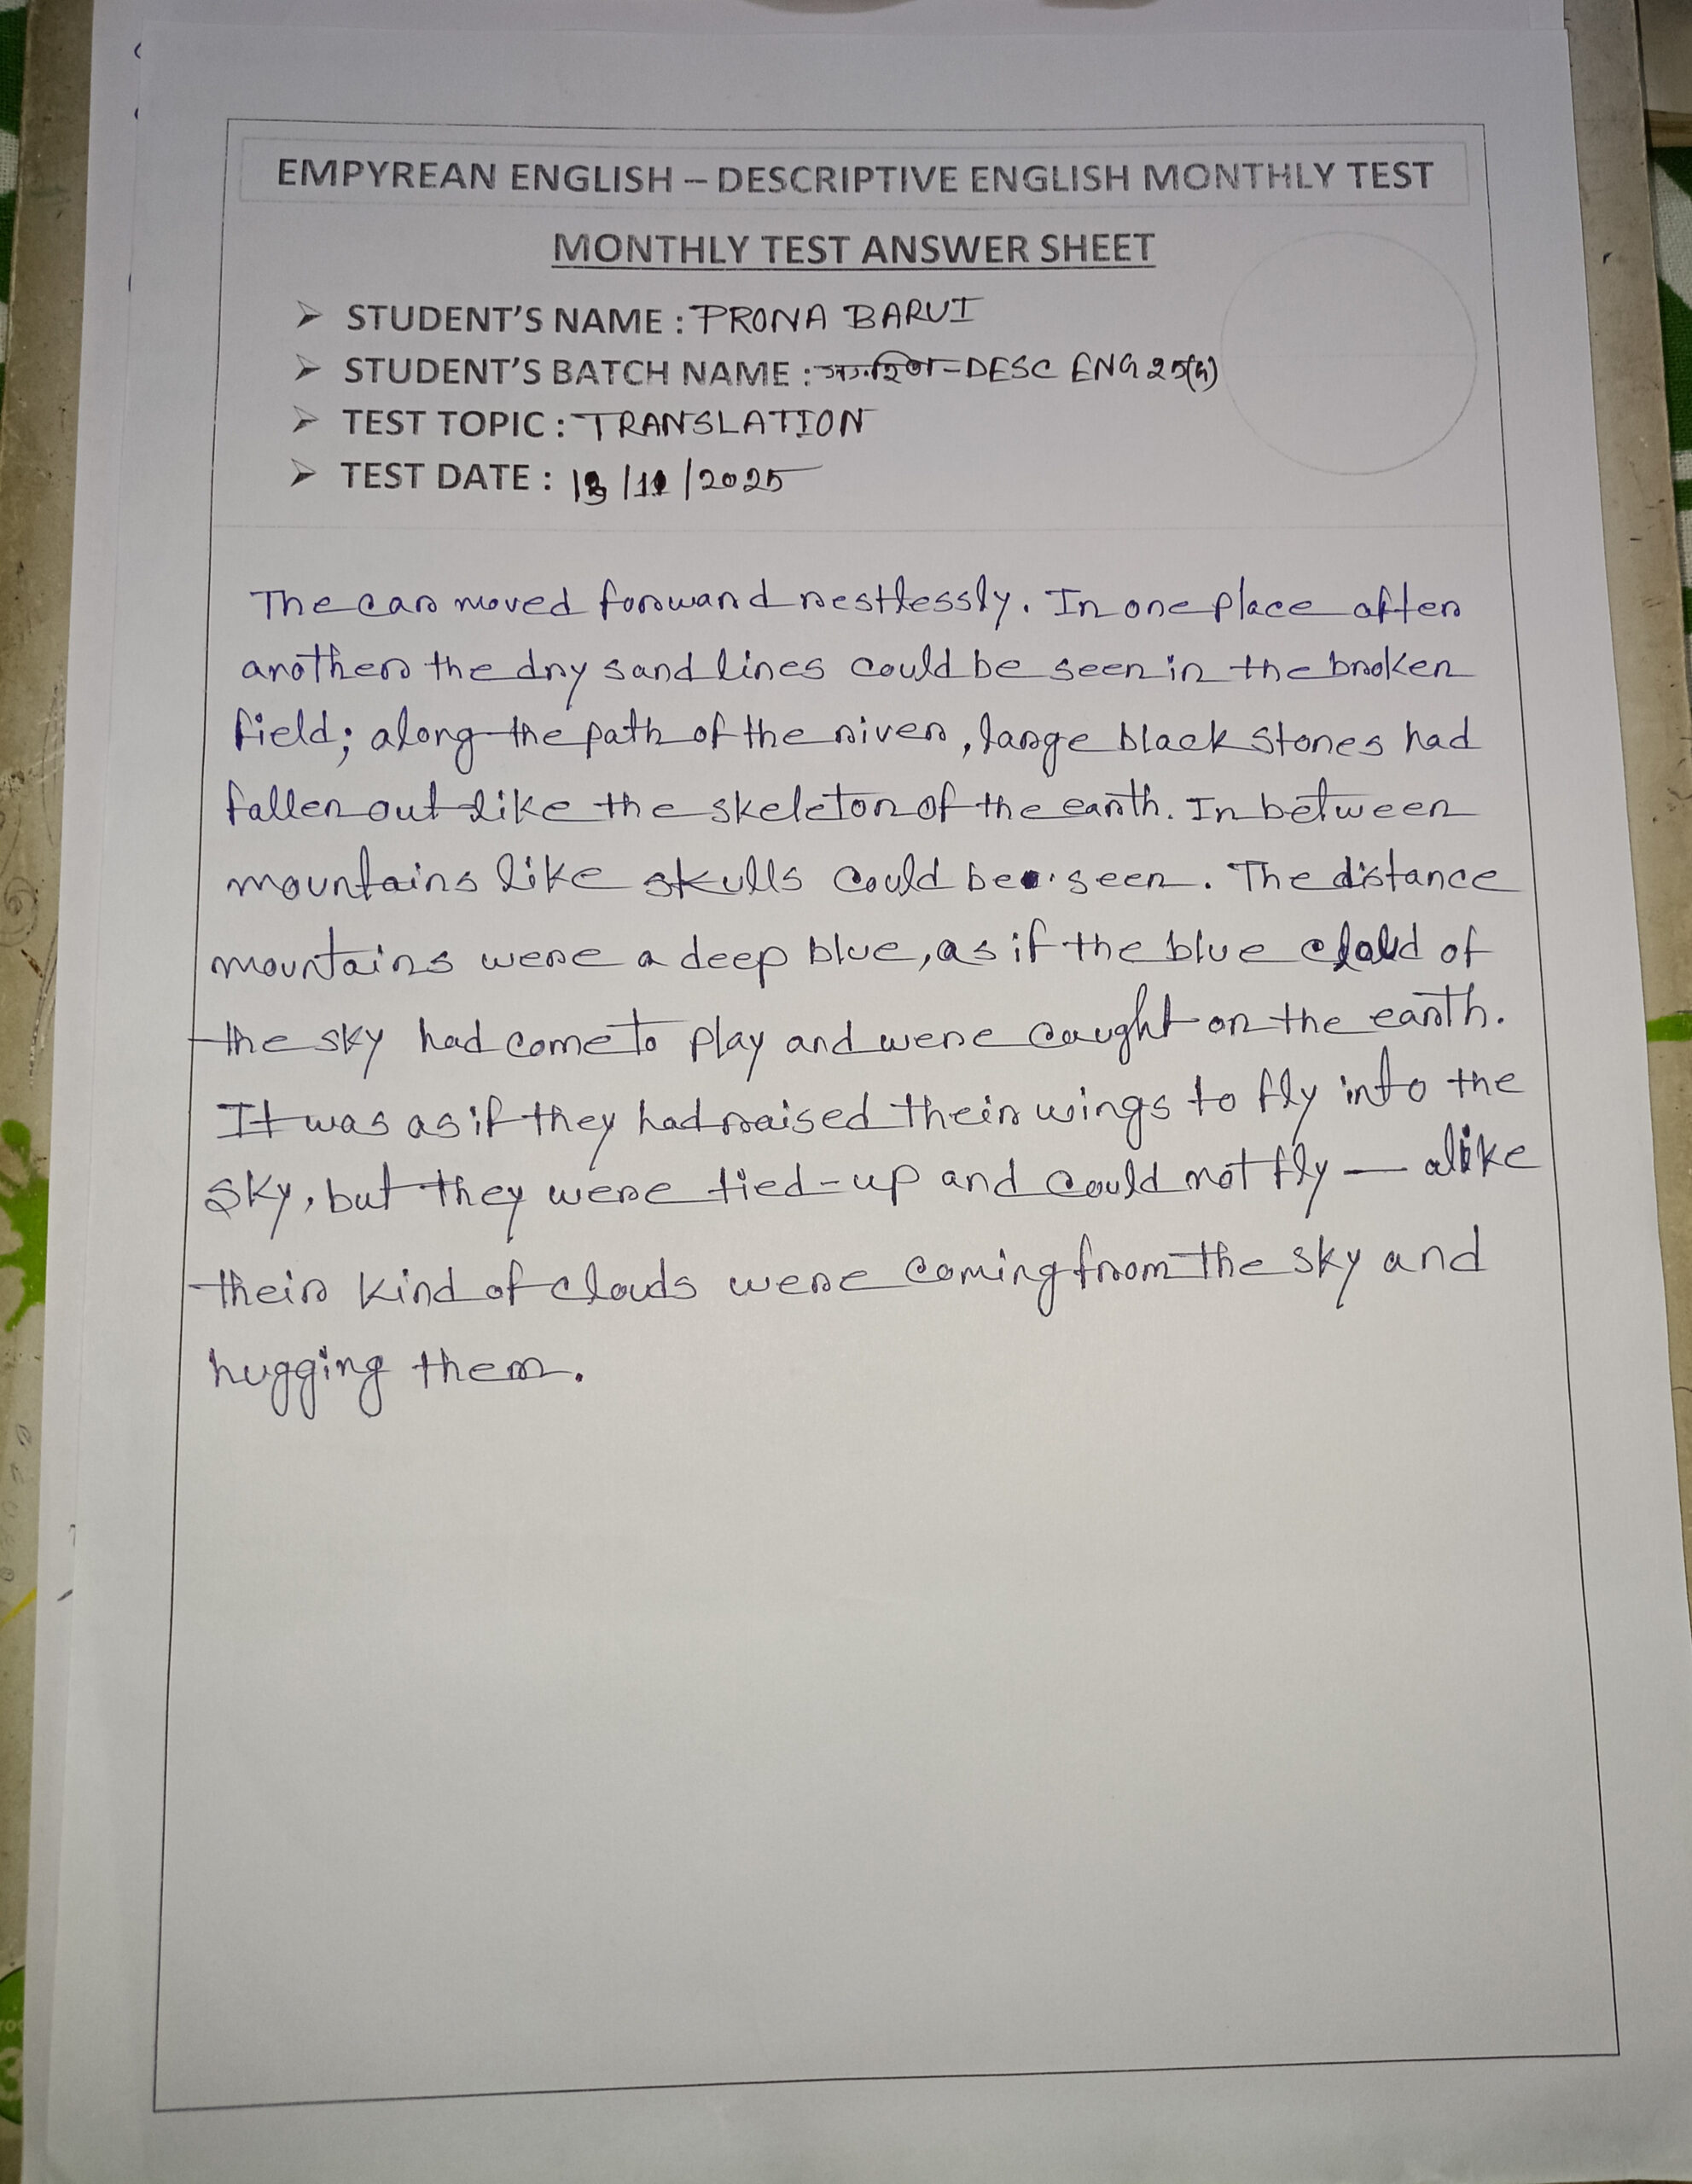 EMPYREAN ENGLISH – DESCRIPTIVE ENGLISH MONTHLY TEST
MONTHLY TEST ANSWER SHEET
➢ STUDENT'S NAME : PRONA BARUI
➢ STUDENT'S BATCH NAME : DESC ENG 25(4)
➢ TEST TOPIC : TRANSLATION
➢ TEST DATE : 13/11/2025
The car moved forward restlessly. In one place after
another the dry sand lines could be seen in the broken
field; along the path of the river, large black stones had
fallen out like the skeleton of the earth. In between
mountains like skulls could be seen. The distance
mountains were a deep blue, as if the blue cloud of
the sky had come to play and were caught on the earth.
It was as if they had raised their wings to fly into the
sky, but they were tied-up and could not fly — alike
their kind of clouds were coming from the sky and
hugging them.